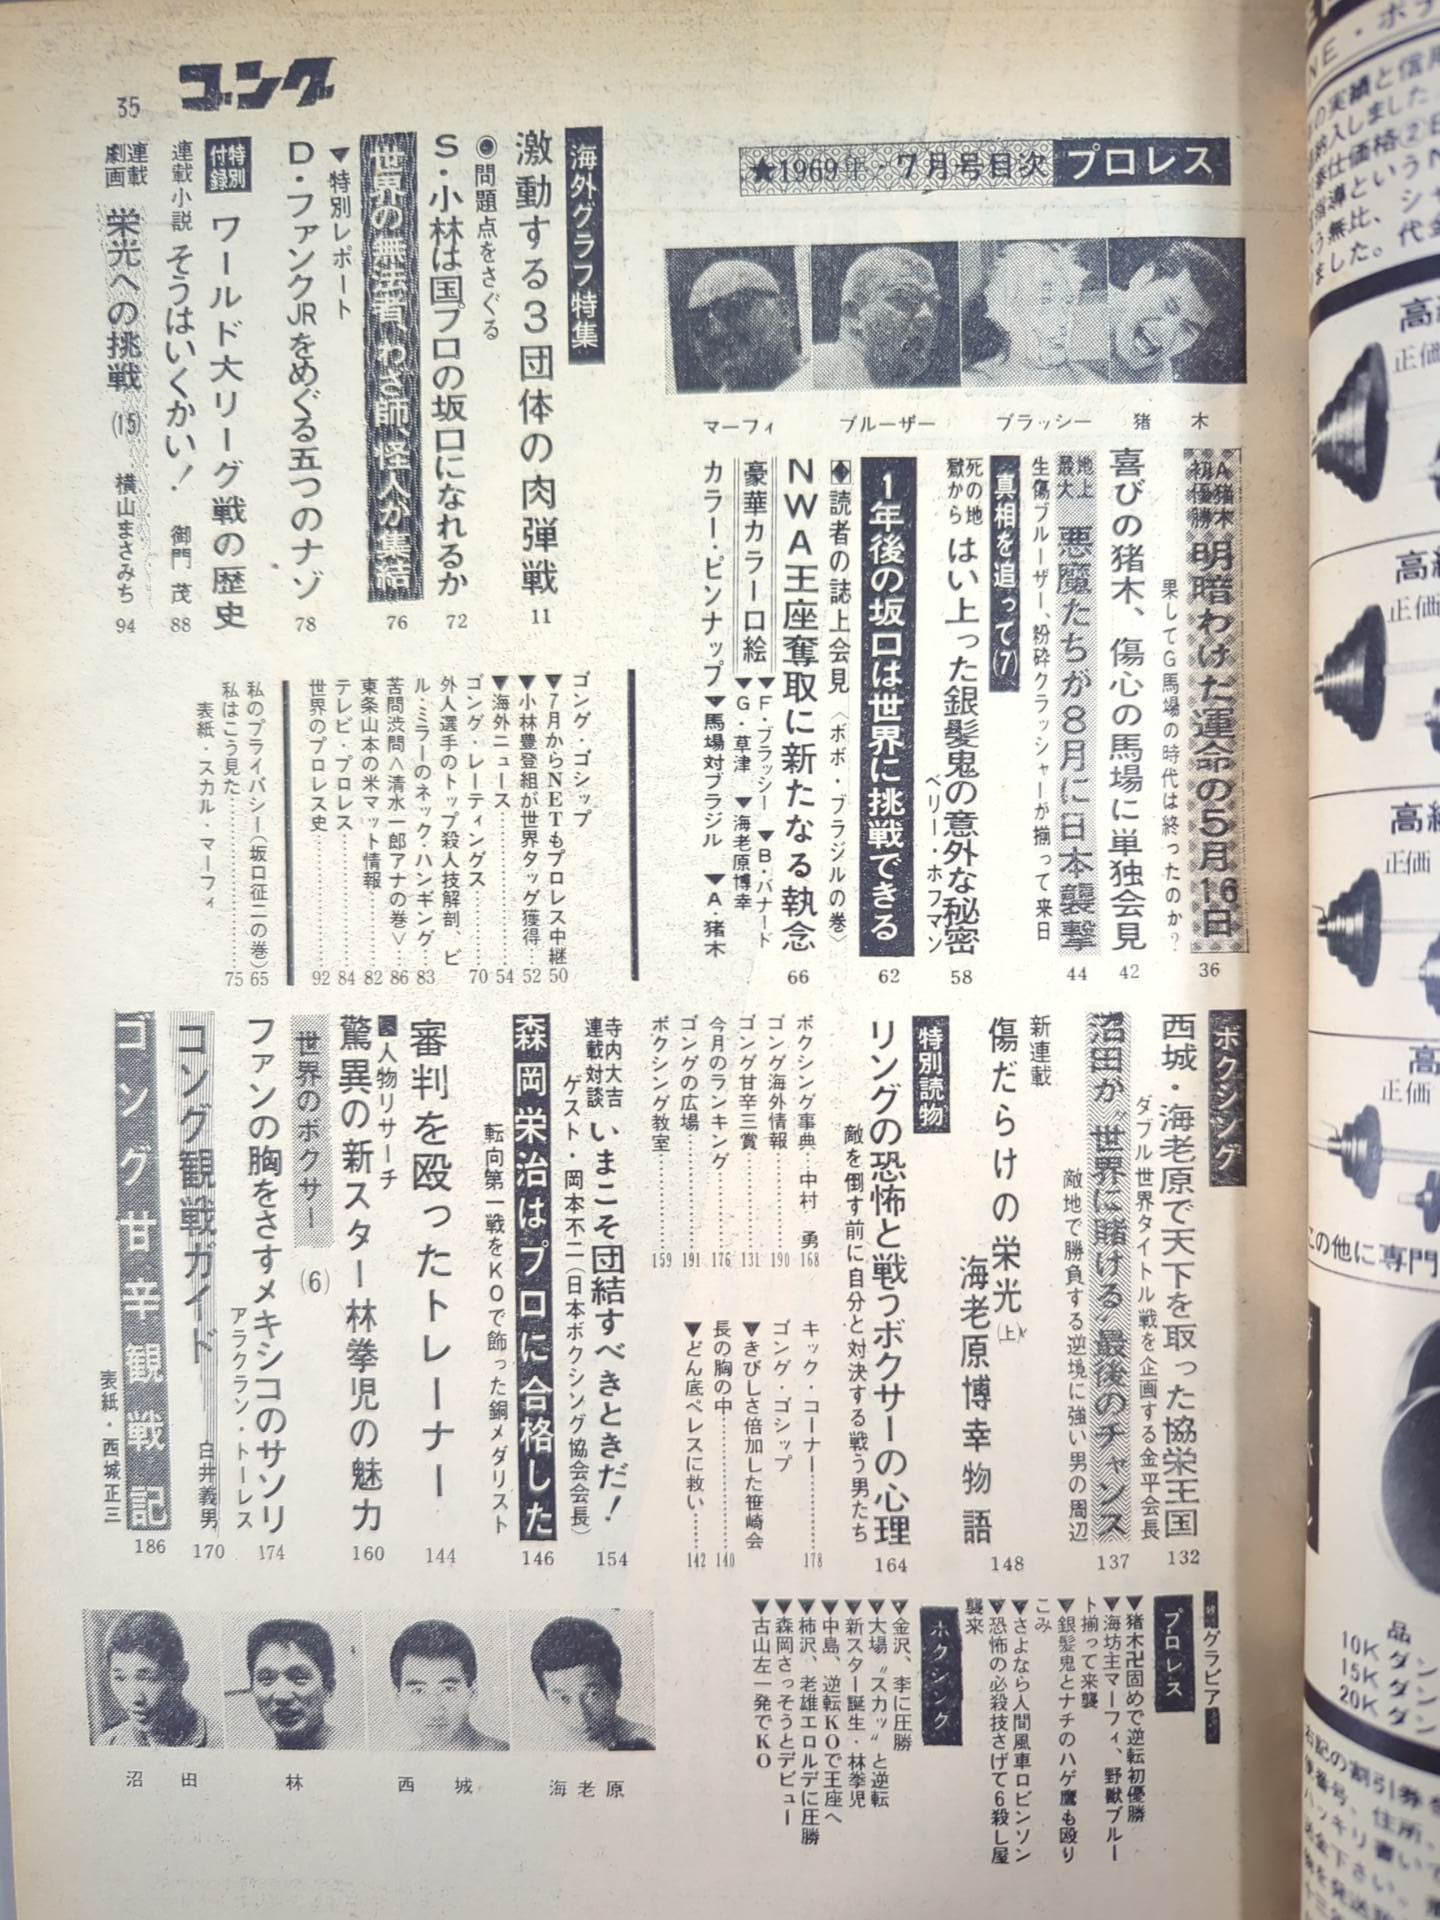 ゴング
35
★1969年・7月号目次
プロレス
猪木
ブラッシー
ブルーザー
マーフィ
A猪木初優勝
明暗わけた運命の5月16日
果してG馬場の時代は終ったのか?
36
喜びの猪木、傷心の馬場に単独会見
42
地上最大
悪魔たちが8月に日本襲撃
生傷ブルーザー、粉砕クラッシャーが揃って来日
44
真相を追って(7)
死の地獄から
はい上った銀髪鬼の意外な秘密
ベリー・ホフマン
58
1年後の坂口は世界に挑戦できる
62
◆読者の誌上会見〈ボボ・ブラジルの巻〉
NWA王座奪取に新たなる執念
66
豪華カラー口絵
▼F・ブラッシー ▼B・バナード
▼G・草津 ▼海老原博幸
カラー・ピンナップ
▼馬場対ブラジル ▼A・猪木
海外グラフ特集
激動する3団体の肉弾戦
11
◉問題点をさぐる
S・小林は国プロの坂口になれるか
72
世界の無法者、わざ師、怪人が集結
76
▼特別レポート
D・ファンクJRをめぐる五つのナゾ
78
特別付録
ワールド大リーグ戦の歴史
連載小説
そうはいくかい!
御門 茂
88
連載劇画
栄光への挑戦
(15)
横山まさみち
94
ゴング・ゴシップ
▼7月からNETもプロレス中継
50
▼小林豊登組が世界タッグ獲得…
52
▼海外ニュース……………
54
ゴング・レーティングス………
70
外人選手のトップ殺人技解剖、ビル・ミラーのネック・ハンギング…
83
苦問渋問〈清水一郎アナの巻〉…
86
東条山本の米マット情報………
82
テレビ・プロレス……………
84
世界のプロレス史……………
92
私のプライバシー(坂口征二の巻)
65
私はこう見た……………
75
表紙・スカル・マーフィ
ボクシング
西城・海老原で天下を取った協栄王国
ダブル世界タイトル戦を企画する金平会長
132
沼田が“世界に賭ける”最後のチャンス
敵地で勝負する逆境に強い男の周辺
137
新連載
傷だらけの栄光(上)
海老原博幸物語
148
特別読物
リングの恐怖と戦うボクサーの心理
敵を倒す前に自分と対決する戦う男たち
164
ボクシング事典…中村 勇
168
ゴング海外情報……………
190
ゴング甘辛三賞……………
131
今月のランキング…………
176
ゴングの広場……………
191
ボクシング教室……………
159
キック・コーナー…………
178
ゴング・ゴシップ
▼きびしさ倍加した笹崎会長の胸の中……………
140
▼どん底ペレスに救い………
142
寺内大吉連載対談
いまこそ団結すべきときだ!
ゲスト・岡本不二(日本ボクシング協会会長)
154
森岡栄治はプロに合格した
転向第一戦をKOで飾った銅メダリスト
146
審判を殴ったトレーナー
144
人物リサーチ
驚異の新スター林拳児の魅力
160
世界のボクサー
(6)
ファンの胸をさすメキシコのサソリ
アラクラン・トーレス
174
ゴング観戦ガイド
白井義男
170
ゴング甘辛観戦記
186
表紙・西城正三
グラビア
プロレス
▼猪木卍固めで逆転初優勝
▼海坊主マーフィ、野獣ブルート揃って来襲
▼銀髪鬼とナチのハゲ鷹も殴りこみ
▼さよなら人間風車ロビンソン
▼恐怖の必殺技さげて6殺し屋襲来
ボクシング
▼金沢、李に圧勝
▼大場“スカッ”と逆転
▼新スター誕生・林拳児
▼中島、逆転KOで王座へ
▼柿沢、老雄エロルデに圧勝
▼森岡さっそうとデビュー
▼古山左一発でKO
海老原
西城
林
沼田
高級
正価
高級
正価
高級
正価
正価
この他に専門
品
10Kダン
15Kダン
20Kダン